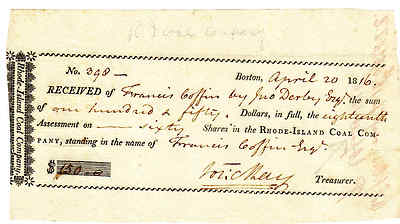 R. I. Coal Company
Rhode-Island Coal Company.
No. 398 — Boston, April 20 1816.
RECEIVED of Francis Coffin by Jno Derby Esqr. the sum
of one hundred & fifty. Dollars, in full, the eighteenth
Assessment on — sixty Shares in the RHODE-ISLAND COAL COM-
PANY, standing in the name of Francis Coffin Esqr.
$150 Jos: May Treasurer.